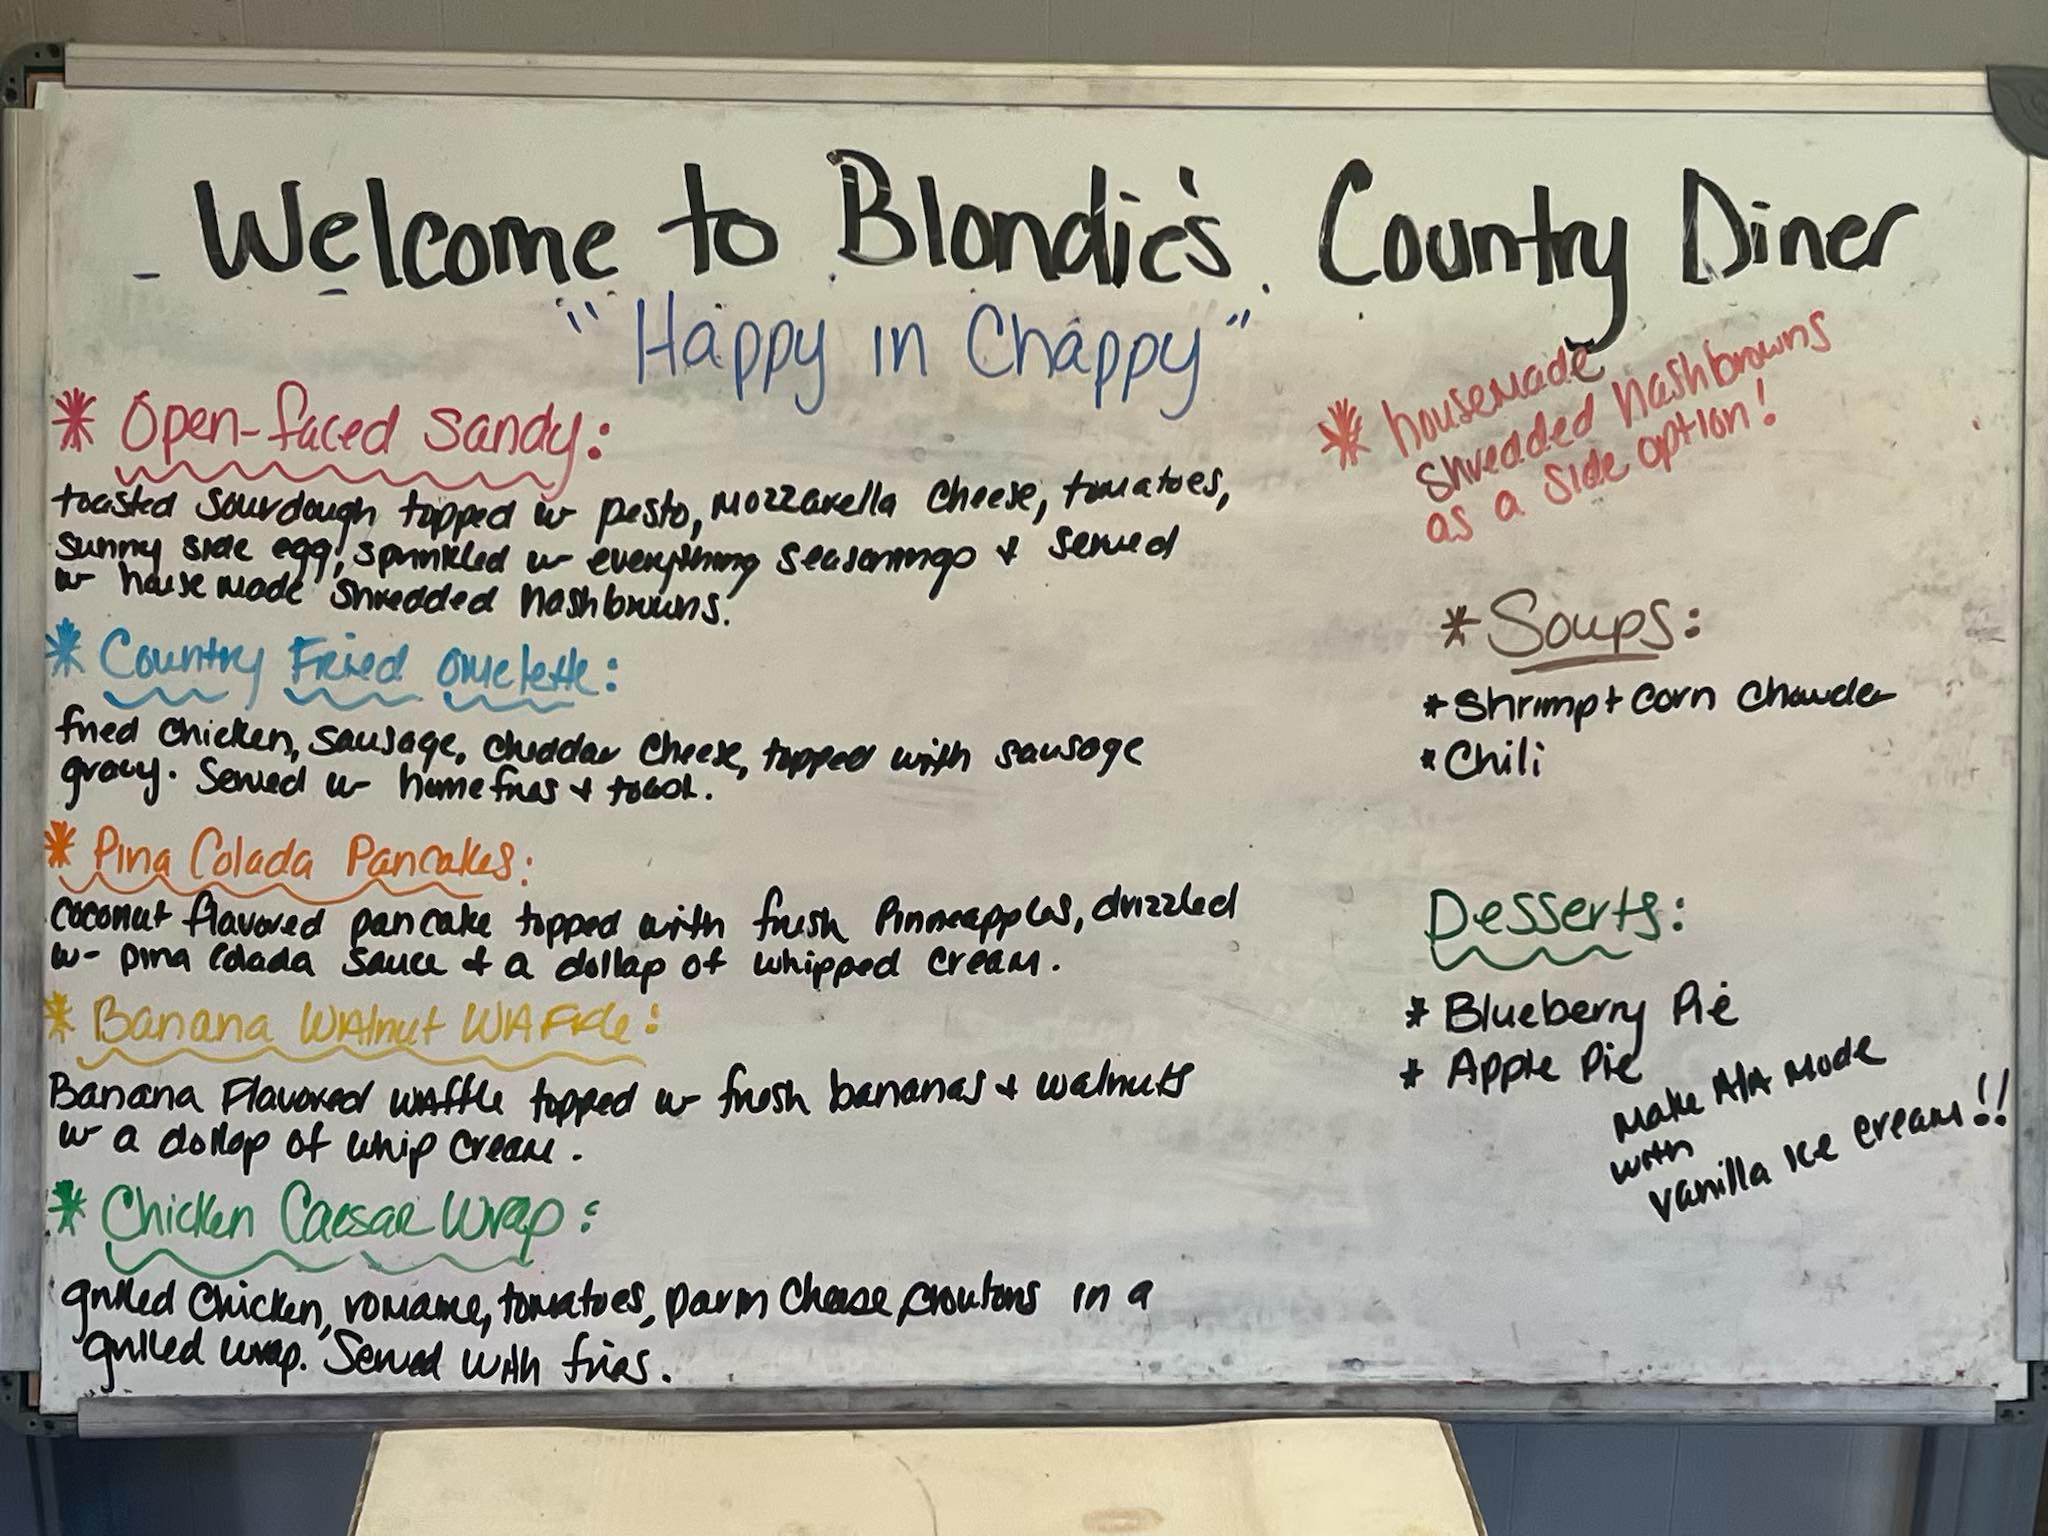 Welcome to Blondie's Country Diner
"Happy in Chappy"
* Open-faced Sandy:
toasted sourdough topped w pesto, mozzarella cheese, tomatoes,
sunny side egg, sprinkled w everything seasonings + served
w house made shredded hashbrowns.
* Country Fried Omelette:
fried chicken, sausage, cheddar cheese, topped with sausage
gravy. Served w homefries + toast.
* Pina Colada Pancakes:
coconut flavored pancake topped with fresh Pinneapples, drizzled
w- pina colada sauce + a dollap of whipped cream.
* Banana Walnut Waffle:
Banana Flavored waffle topped w fresh bananas + walnuts
w a dollop of whip cream.
* Chicken Caesar Wrap:
grilled chicken, romaine, tomatoes, parm cheese, croutons in a
grilled wrap. Served with fries.
* housemade
shredded hashbrowns
as a side option!
* Soups:
* Shrimp + Corn Chowder
* Chili
Desserts:
* Blueberry Pie
* Apple Pie
Make A/A Mode
with
vanilla ice cream!!